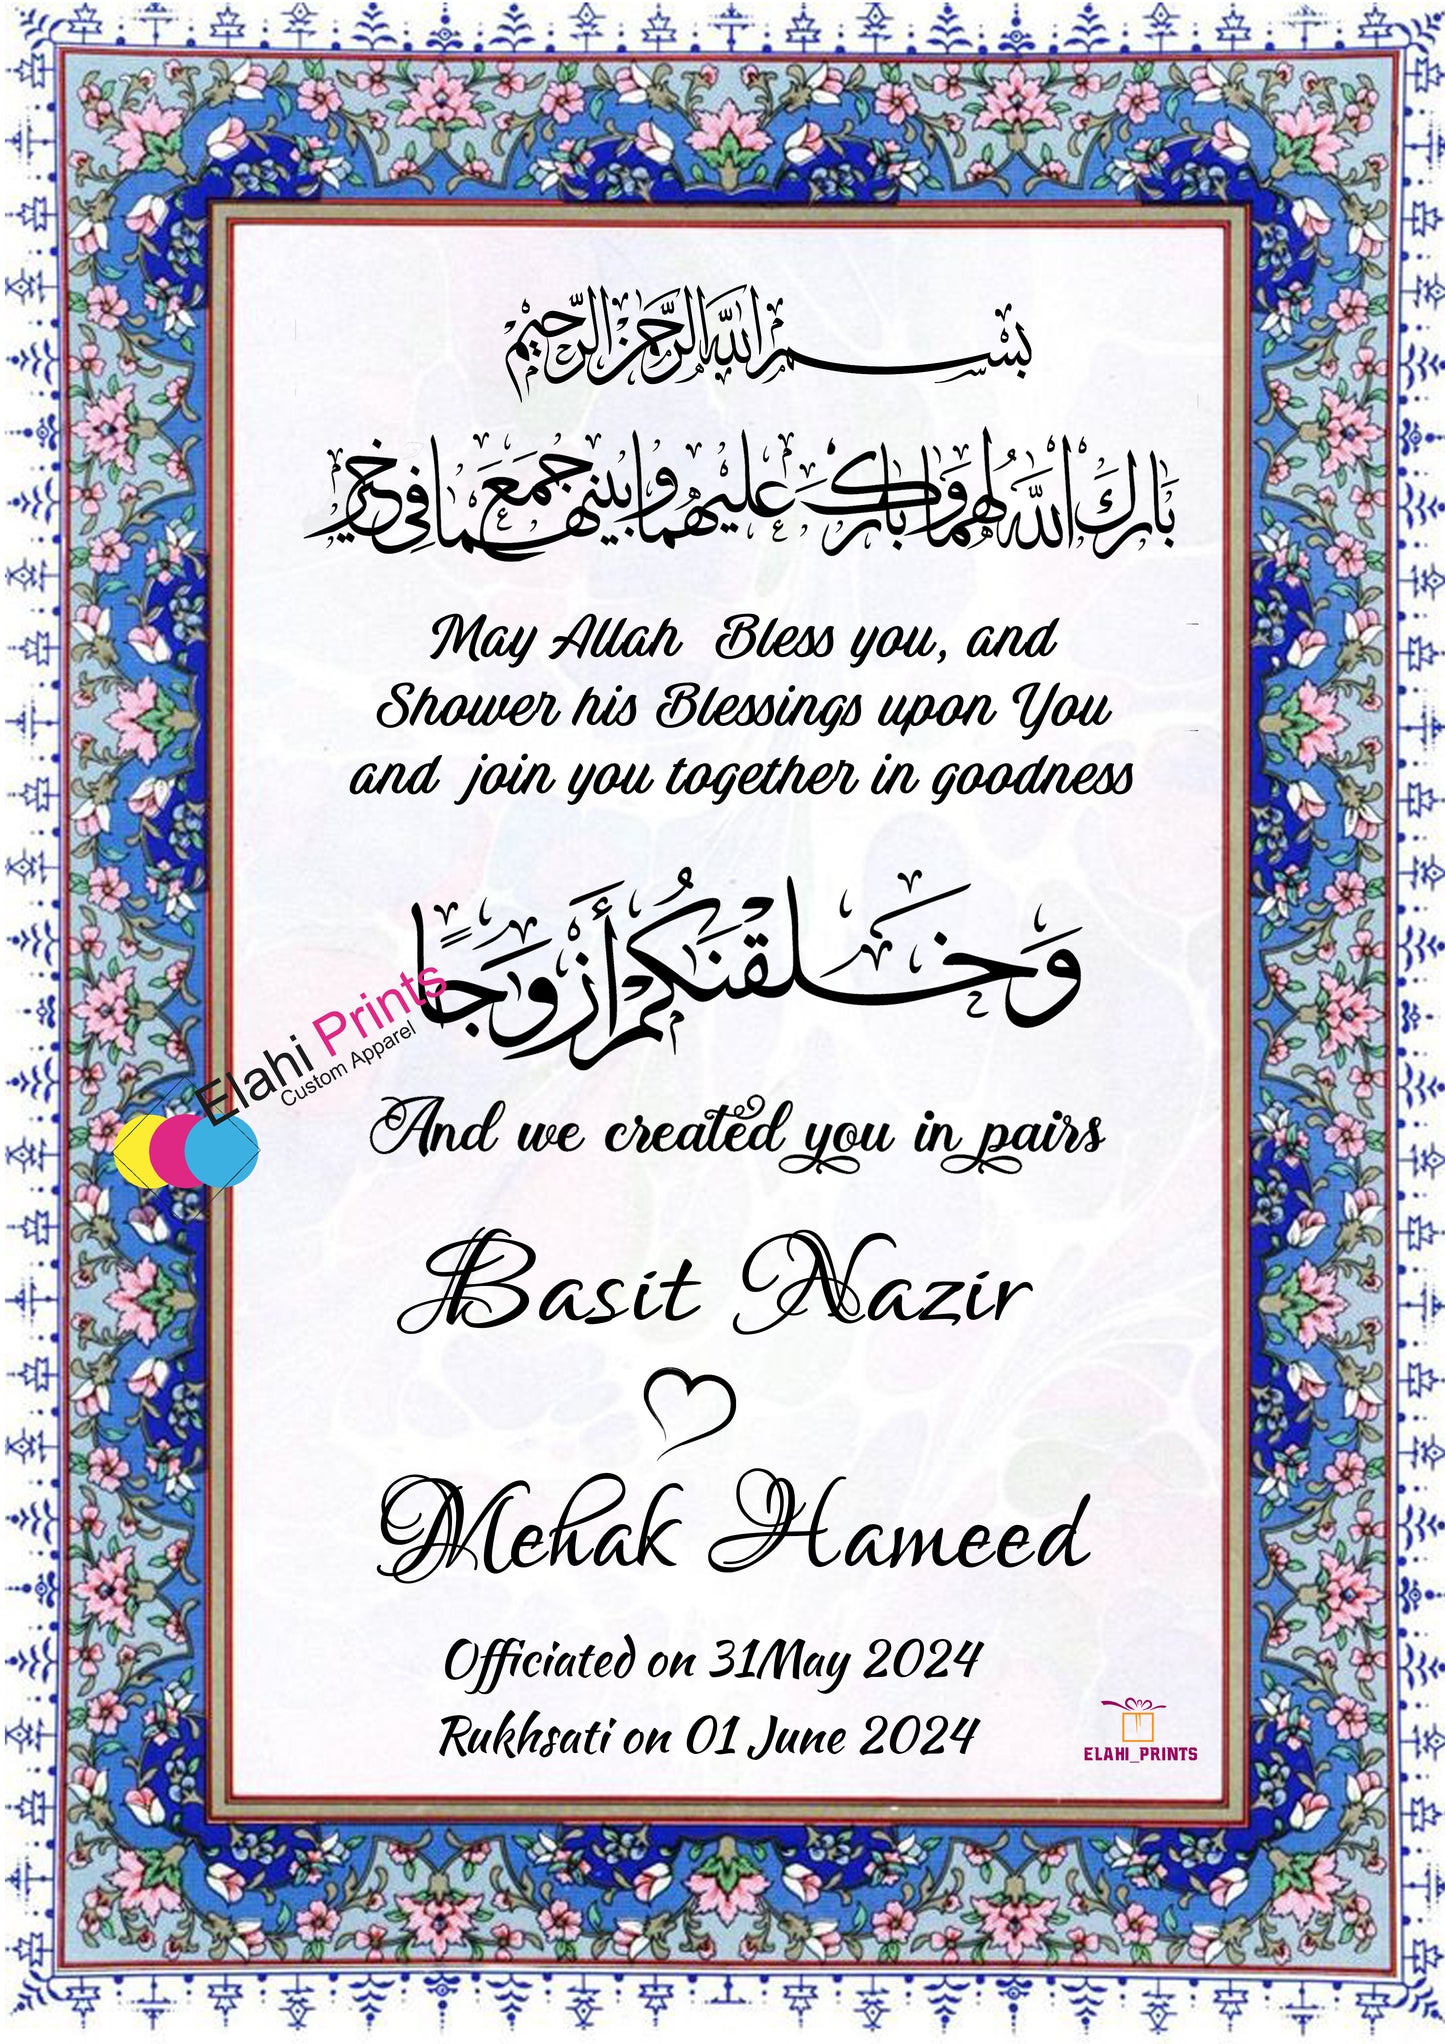 بِسْمِ اللَّهِ الرَّحْمَٰنِ الرَّحِيمِ
بَارَكَ اللَّهُ لَهُمَا وَبَارَكَ عَلَيْهِمَا وَبَيْنَهُمَا جَمَعَ فِي خَيْرٍ
May Allah Bless you, and
Shower his Blessings upon You
and join you together in goodness
وَخَلَقْنَكُمْ أَزْوَجًا
Elahi Prints
Custom Apparel
And we created you in pairs
Basit Nazir
Mehak Hameed
Officiated on 31May 2024
Rukhsati on 01 June 2024
ELAHI_PRINTS